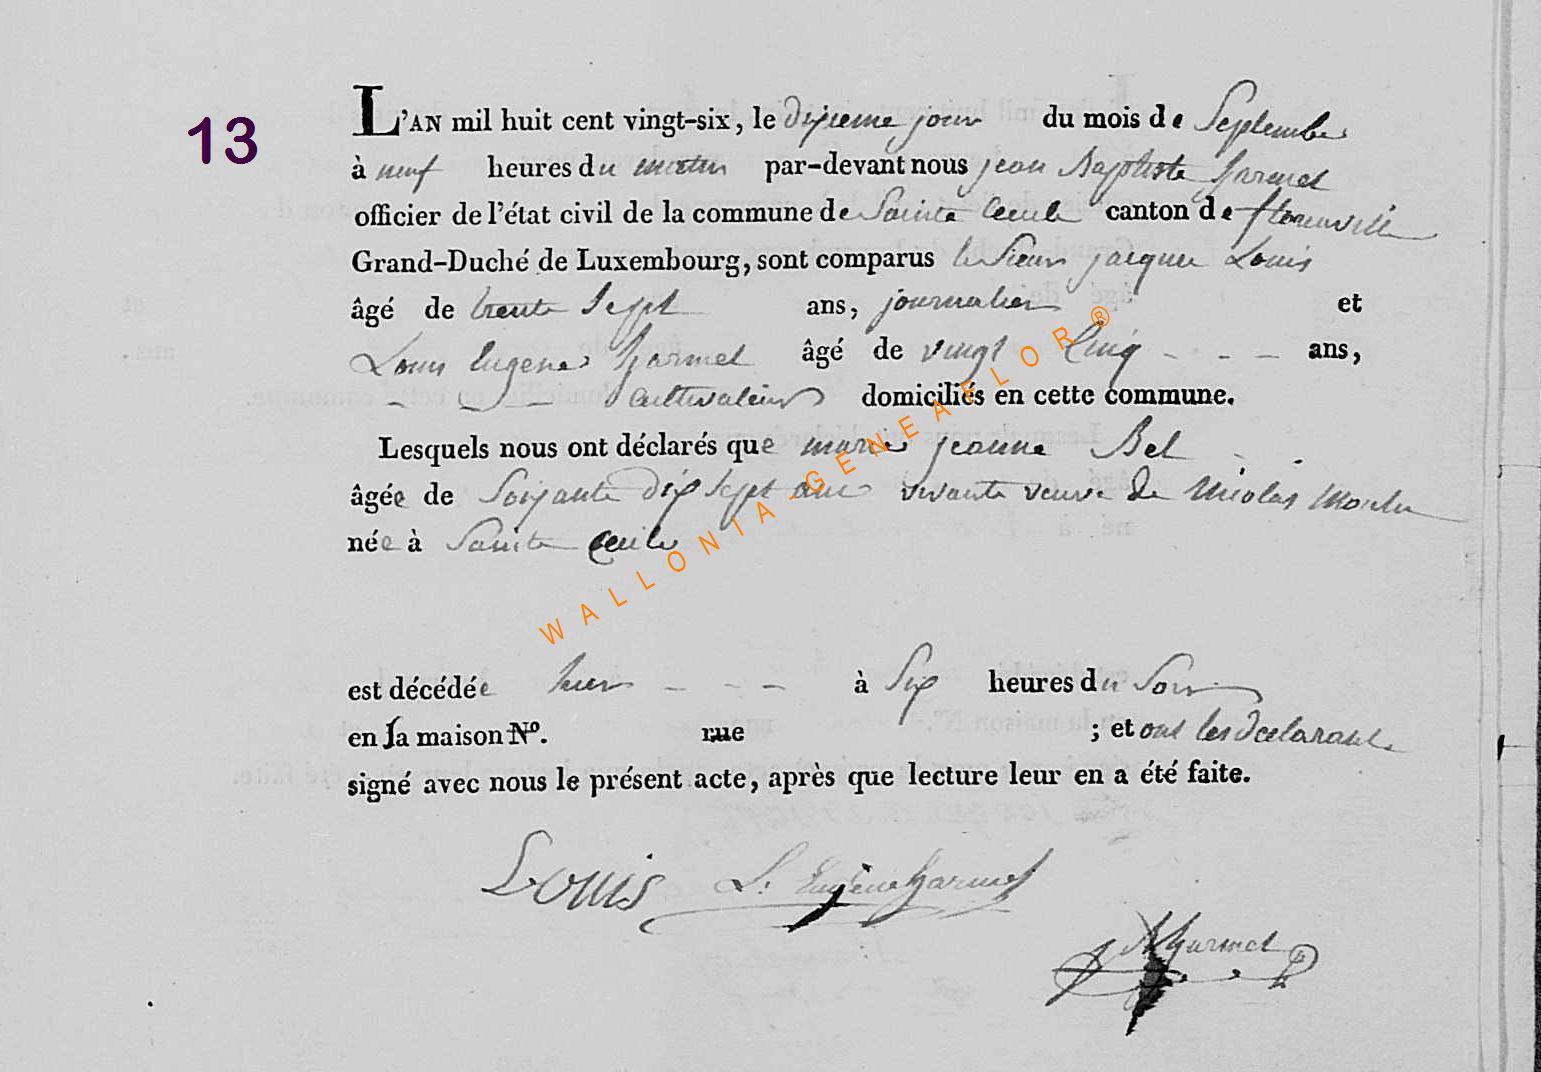 13
L'AN mil huit cent vingt-six, le dixieme jour du mois de Septembre
à neuf heures du matin par-devant nous jean Baptiste harmel
officier de l'état civil de la commune de Sainte Cecile canton de florenville
Grand-Duché de Luxembourg, sont comparus le Sieur jacque Louis
âgé de trente Sept ans, journalier et
Louis Eugene harmel âgé de vingt Cinq - - - ans,
- - - Cultivateur domiciliés en cette commune.
Lesquels nous ont déclarés que marie jeanne Bel
âgée de Soixante dix Sept ans vivante veuve de Nicolas
née à Sainte Cecile
est décédée hier - - - à Six heures du Soir
en sa maison Nº. rue ; et ont les declarants
signé avec nous le présent acte, après que lecture leur en a été faite.
Louis L. Eugene harmel
harmel
WALLONIA-GENEAFLOR®